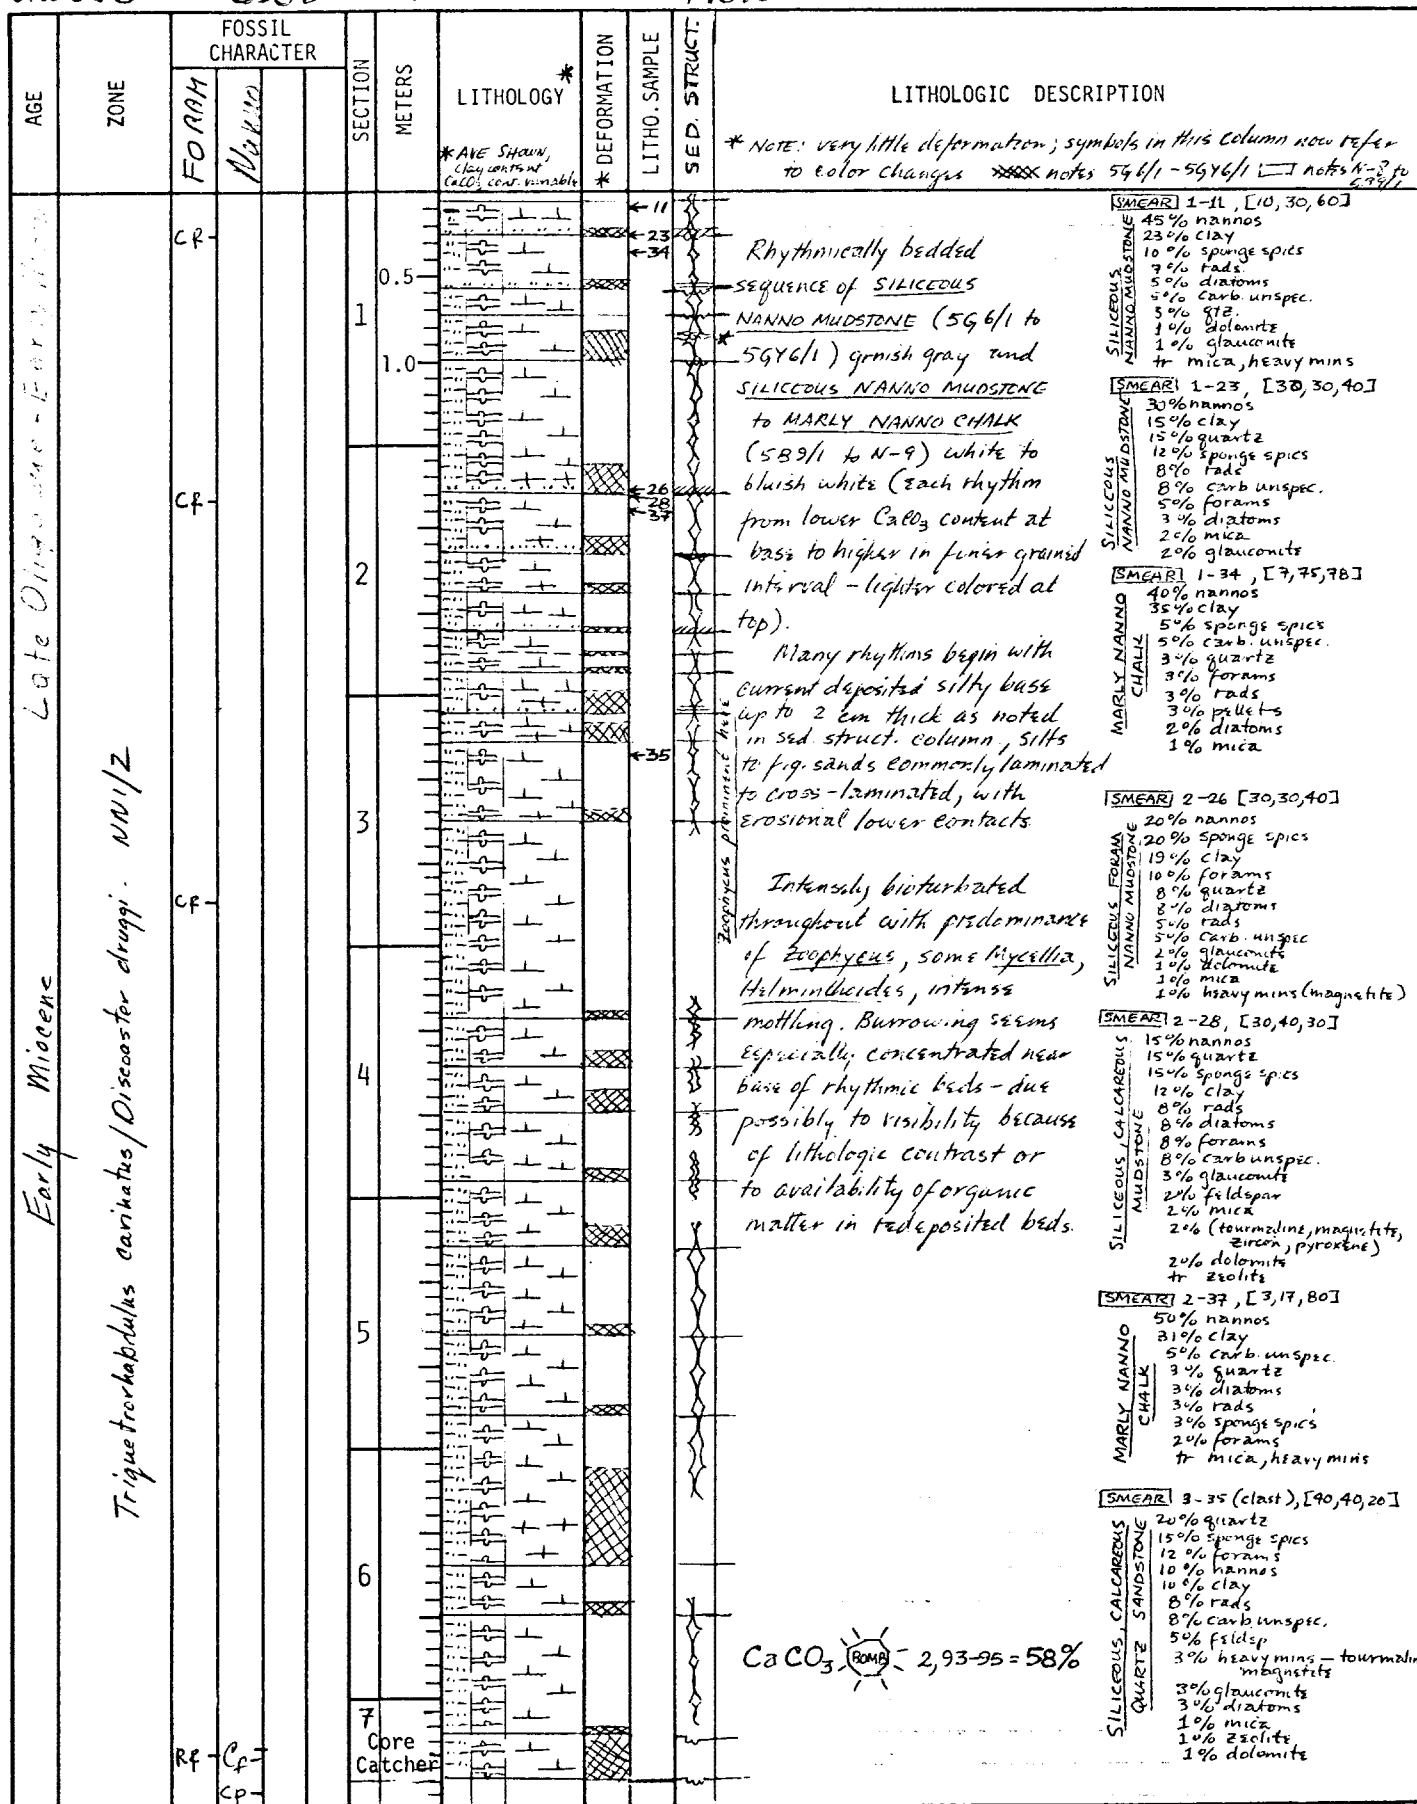 FOSSIL
CHARACTER
AGE
ZONE
FORAM
Nanno
SECTION
METERS
LITHOLOGY *
* AVE SHOWN,
clay content
CaCO3 cont. variable
* DEFORMATION *
LITHO. SAMPLE
SED. STRUCT.
LITHOLOGIC DESCRIPTION
* NOTE: very little deformation; symbols in this column now refer
to color changes notes 5G6/1 - 5GY6/1 notes N-9 to
Late Oligocene - Early Miocene
Early Miocene
Triquetrorhabdulus carinatus/Discoaster druggi. NN1/2
Cf
Cf
Cf
Rf
Cf
Cp
1
2
3
4
5
6
7
Core
Catcher
0.5
1.0
11
23
34
26
28
37
35
*
Rhythmically bedded
sequence of SILICEOUS
NANNO MUDSTONE (5G 6/1 to
5GY6/1) grnish gray and
SILICEOUS NANNO MUDSTONE
to MARLY NANNO CHALK
(5B9/1 to N-9) white to
bluish white (Each rhythm
from lower CaCO3 content at
base to higher in finer grained
interval - lighter colored at
top).
Many rhythms begin with
current deposited silty base
up to 2 cm thick as noted
in sed. struct. column, silts
to f.g. sands commonly laminated
to cross-laminated, with
erosional lower contacts.
Zoophycus prominent here
Intensely bioturbated
throughout with predominance
of Zoophycus, some Mycellia,
Helminthoides, intense
mottling. Burrowing seems
especially concentrated near
base of rhythmic beds - due
possibly to visibility because
of lithologic contrast or
to availability of organic
matter in redeposited beds.
CaCO3 BOMB 2,93-95 = 58%
SMEAR 1-11, [10,30,60]
SILICEOUS
NANNO MUDSTONE
45% nannos
23% clay
10% sponge spics
7% rads.
5% diatoms
5% carb. unspec.
3% qtz.
1% dolomite
1% glauconite
tr mica, heavy mins
SMEAR 1-23, [30,30,40]
SILICEOUS
NANNO MUDSTONE
30% nannos
15% clay
15% quartz
12% sponge spics
8% rads
8% carb unspec.
5% forams
3% diatoms
2% mica
2% glauconite
SMEAR 1-34, [7,75,78]
MARLY NANNO
CHALK
40% nannos
35% clay
5% sponge spics
5% carb. unspec.
3% quartz
3% forams
3% rads
3% pellets
2% diatoms
1% mica
SMEAR 2-26 [30,30,40]
SILICEOUS FORAM
NANNO MUDSTONE
20% nannos
20% sponge spics
19% clay
10% forams
8% quartz
8% diatoms
5% rads
5% carb. unspec
2% glauconite
1% dolomite
1% mica
1% heavy mins (magnetite)
SMEAR 2-28, [30,40,30]
SILICEOUS, CALCAREOUS
MUDSTONE
15% nannos
15% quartz
15% sponge spics
12% clay
8% rads
8% diatoms
8% forams
8% carb unspec.
3% glauconite
2% feldspar
2% mica
2% (tourmaline, magnetite,
zircon, pyroxene)
2% dolomite
tr zeolite
SMEAR 2-37, [3,17,80]
MARLY NANNO
CHALK
50% nannos
31% clay
5% carb. unspec.
3% quartz
3% diatoms
3% rads
3% sponge spics
2% forams
tr mica, heavy mins
SMEAR 3-35 (clast), [40,40,20]
SILICEOUS, CALCAREOUS
QUARTZ SANDSTONE
20% quartz
15% sponge spics
12% forams
10% nannos
10% clay
8% rads
8% carb unspec.
5% feldsp
3% heavy mins - tourmalin
magnetite
3% glauconite
3% diatoms
1% mica
1% zeolite
1% dolomite